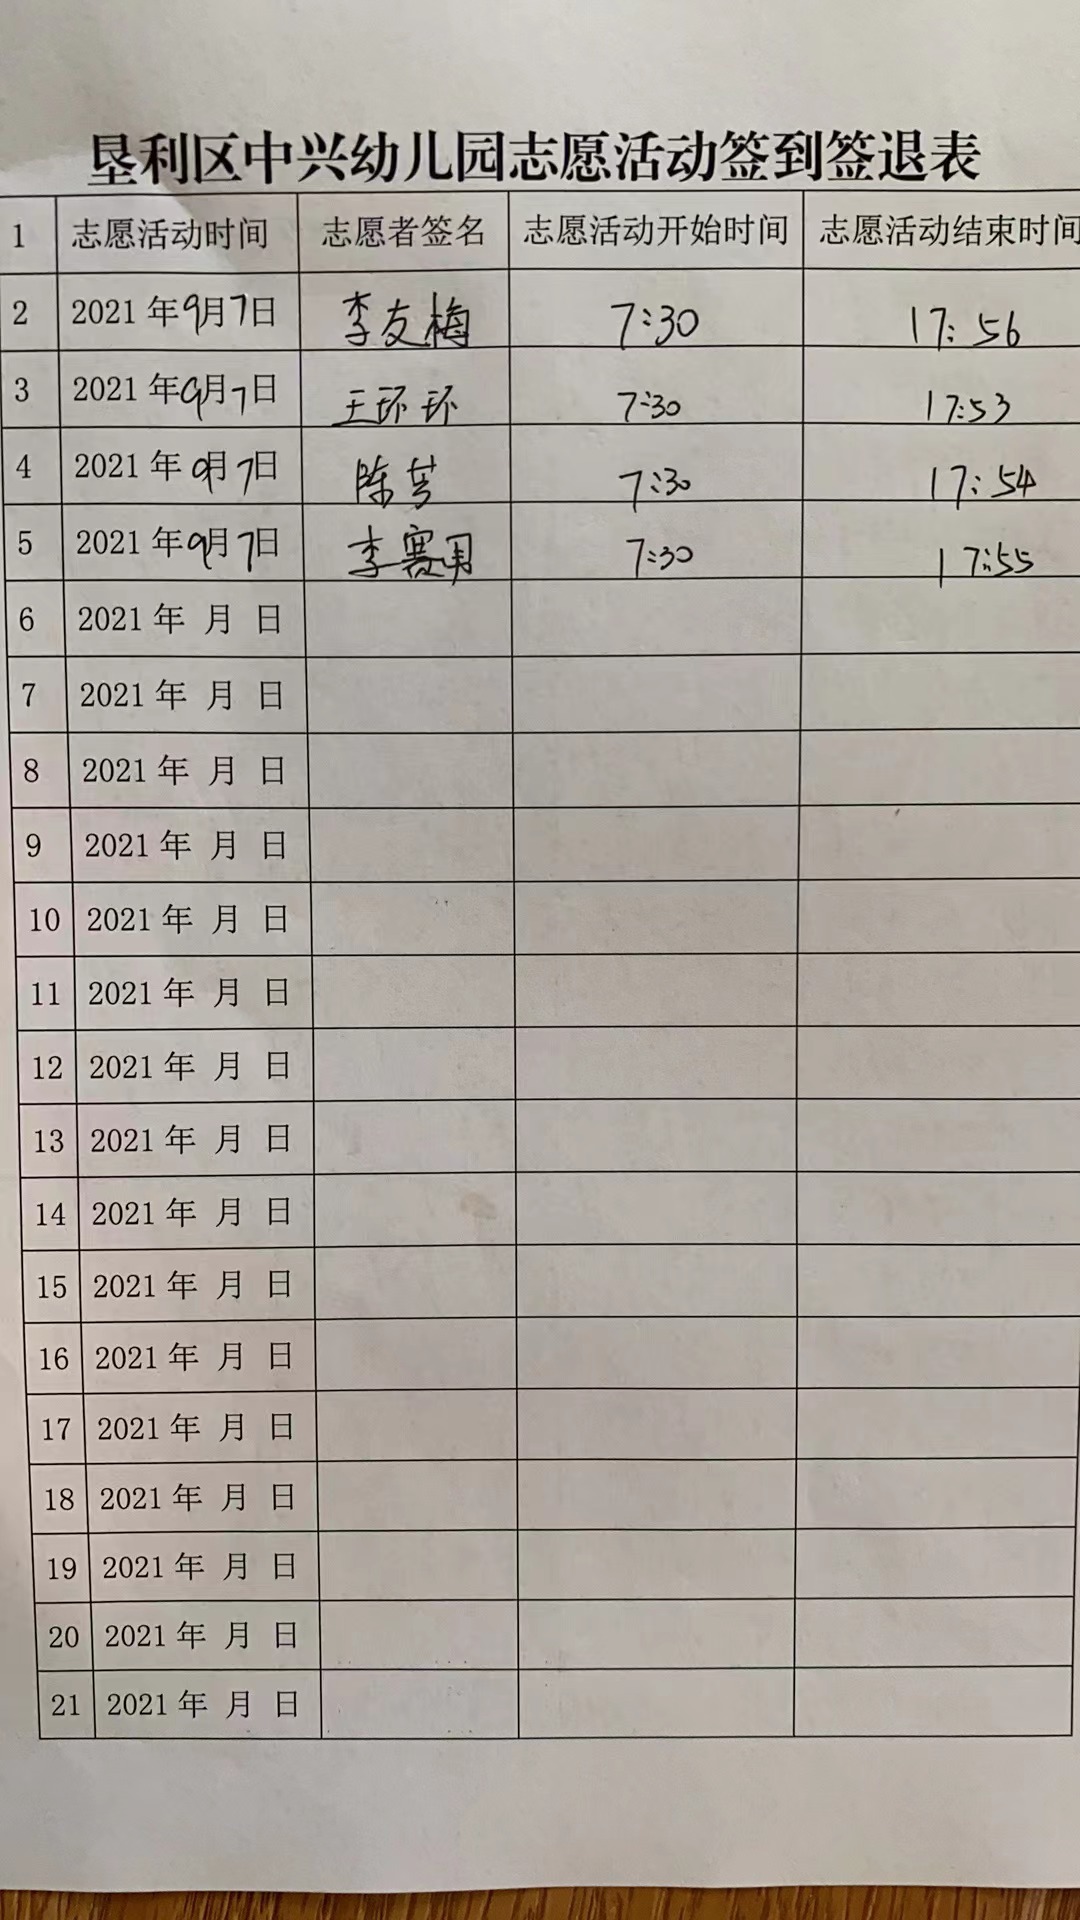 垦利区中兴幼儿园志愿活动签到签退表
1 志愿活动时间 志愿者签名 志愿活动开始时间 志愿活动结束时间
2 2021年9月7日 李友梅 7:30 17:56
3 2021年9月7日 王环环 7:30 17:53
4 2021年9月7日 陈 7:30 17:54
5 2021年9月7日 李赛男 7:30 17:55
6 2021年 月 日
7 2021年 月 日
8 2021年 月 日
9 2021年 月 日
10 2021年 月 日
11 2021年 月 日
12 2021年 月 日
13 2021年 月 日
14 2021年 月 日
15 2021年 月 日
16 2021年 月 日
17 2021年 月 日
18 2021年 月 日
19 2021年 月 日
20 2021年 月 日
21 2021年 月 日